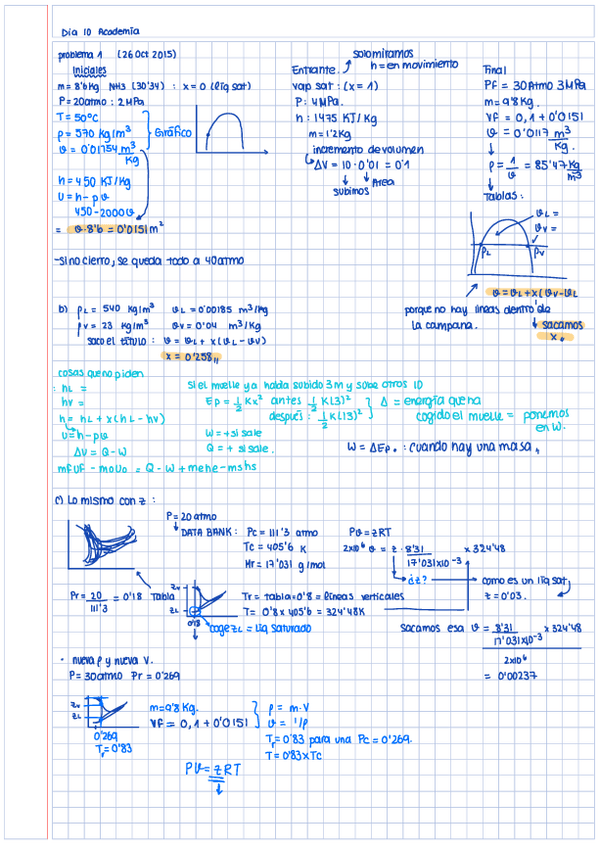 Día 10 Academia
problema 1 (26 Oct 2015)
Iniciales
m = 8'6kg NH3 (30'34) : x = 0 (líq sat)
P = 20atmo : 2MPa
T = 50°C
ρ = 570 kg/m³
Gráfico
h = 450 KJ/kg
U = h - pϑ
450-2000ϑ
= ϑ·8'6 = 0'0151 m³
-si no cierro, se queda todo a 40atmo
solo miramos
h = en movimiento
Entrante
vap sat : (x = 1)
P: 4MPa.
h: 1475 KJ/Kg
m = 1'2Kg
incremento de volumen
ΔV = 10·0'01 = 0'1
subimos
Area
Final
Pf = 30Atmo 3MPa
m = 9'8Kg.
Vf = 0,1 + 0'0151
ϑ = 0'0117 m³/Kg.
ρ = 1/ϑ = 85'47 Kg/m³
Tablas:
ϑL =
ϑV =
ρL
ρV
ϑ = ϑL + x(ϑV - ϑL
porque no hay lineas dentro de
la campana.
sacamos
x.
b) ρL = 540 kg/m³ ϑL = 0'00185 m³/kg
ρV = 23 kg/m³ ϑV = 0'04 m³/kg
saco el título : ϑ = ϑL + x(ϑL - ϑV)
x = 0'258,,
cosas que no piden
hL =
hV =
h = hL + x(hL - hV)
U = h - pϑ
ΔU = Q - W
mfUf - moUo = Q - W + mehe - mshs
Si el muelle ya había subido 3m y sube otros 10
Ep = 1/2 Kx² antes 1/2 K(3)²
después: 1/2 K(13)²
Δ = energía que ha
cogido el muelle = ponemos
en W.
W = + si sale
Q = + si sale.
W = ΔEp. : cuando hay una masa,
c) Lo mismo con z :
P = 20 atmo
DATA BANK: Pc = 111'3 atmo
Tc = 405'6 K
Mr = 17'031 g/mol
Pϑ = zRT
2x10⁶ ϑ = z · 8'31/17'031x10⁻³ x 324'48
¿z?
como es un líq sat,
z = 0'03.
Pr = 20/111'3 = 0'18
Tabla
zV
zL
0'18
coge zL = líq saturado
Tr = tabla = 0'8 = líneas verticales
T = 0'8 x 405'6 = 324'48K
sacamos esa ϑ = 8'31/17'031x10⁻³ x 324'48
2x10⁶
= 0'00237
· nueva p y nueva v.
P = 30atmo Pr = 0'269
zV
zL
0'269
Tr = 0'83
m = 9'8 Kg.
Vf = 0,1 + 0'0151
ρ = m·V
ϑ = 1/ρ
Tr = 0'83 para una Pc = 0'269.
T = 0'83 x Tc
Pϑ = zRT